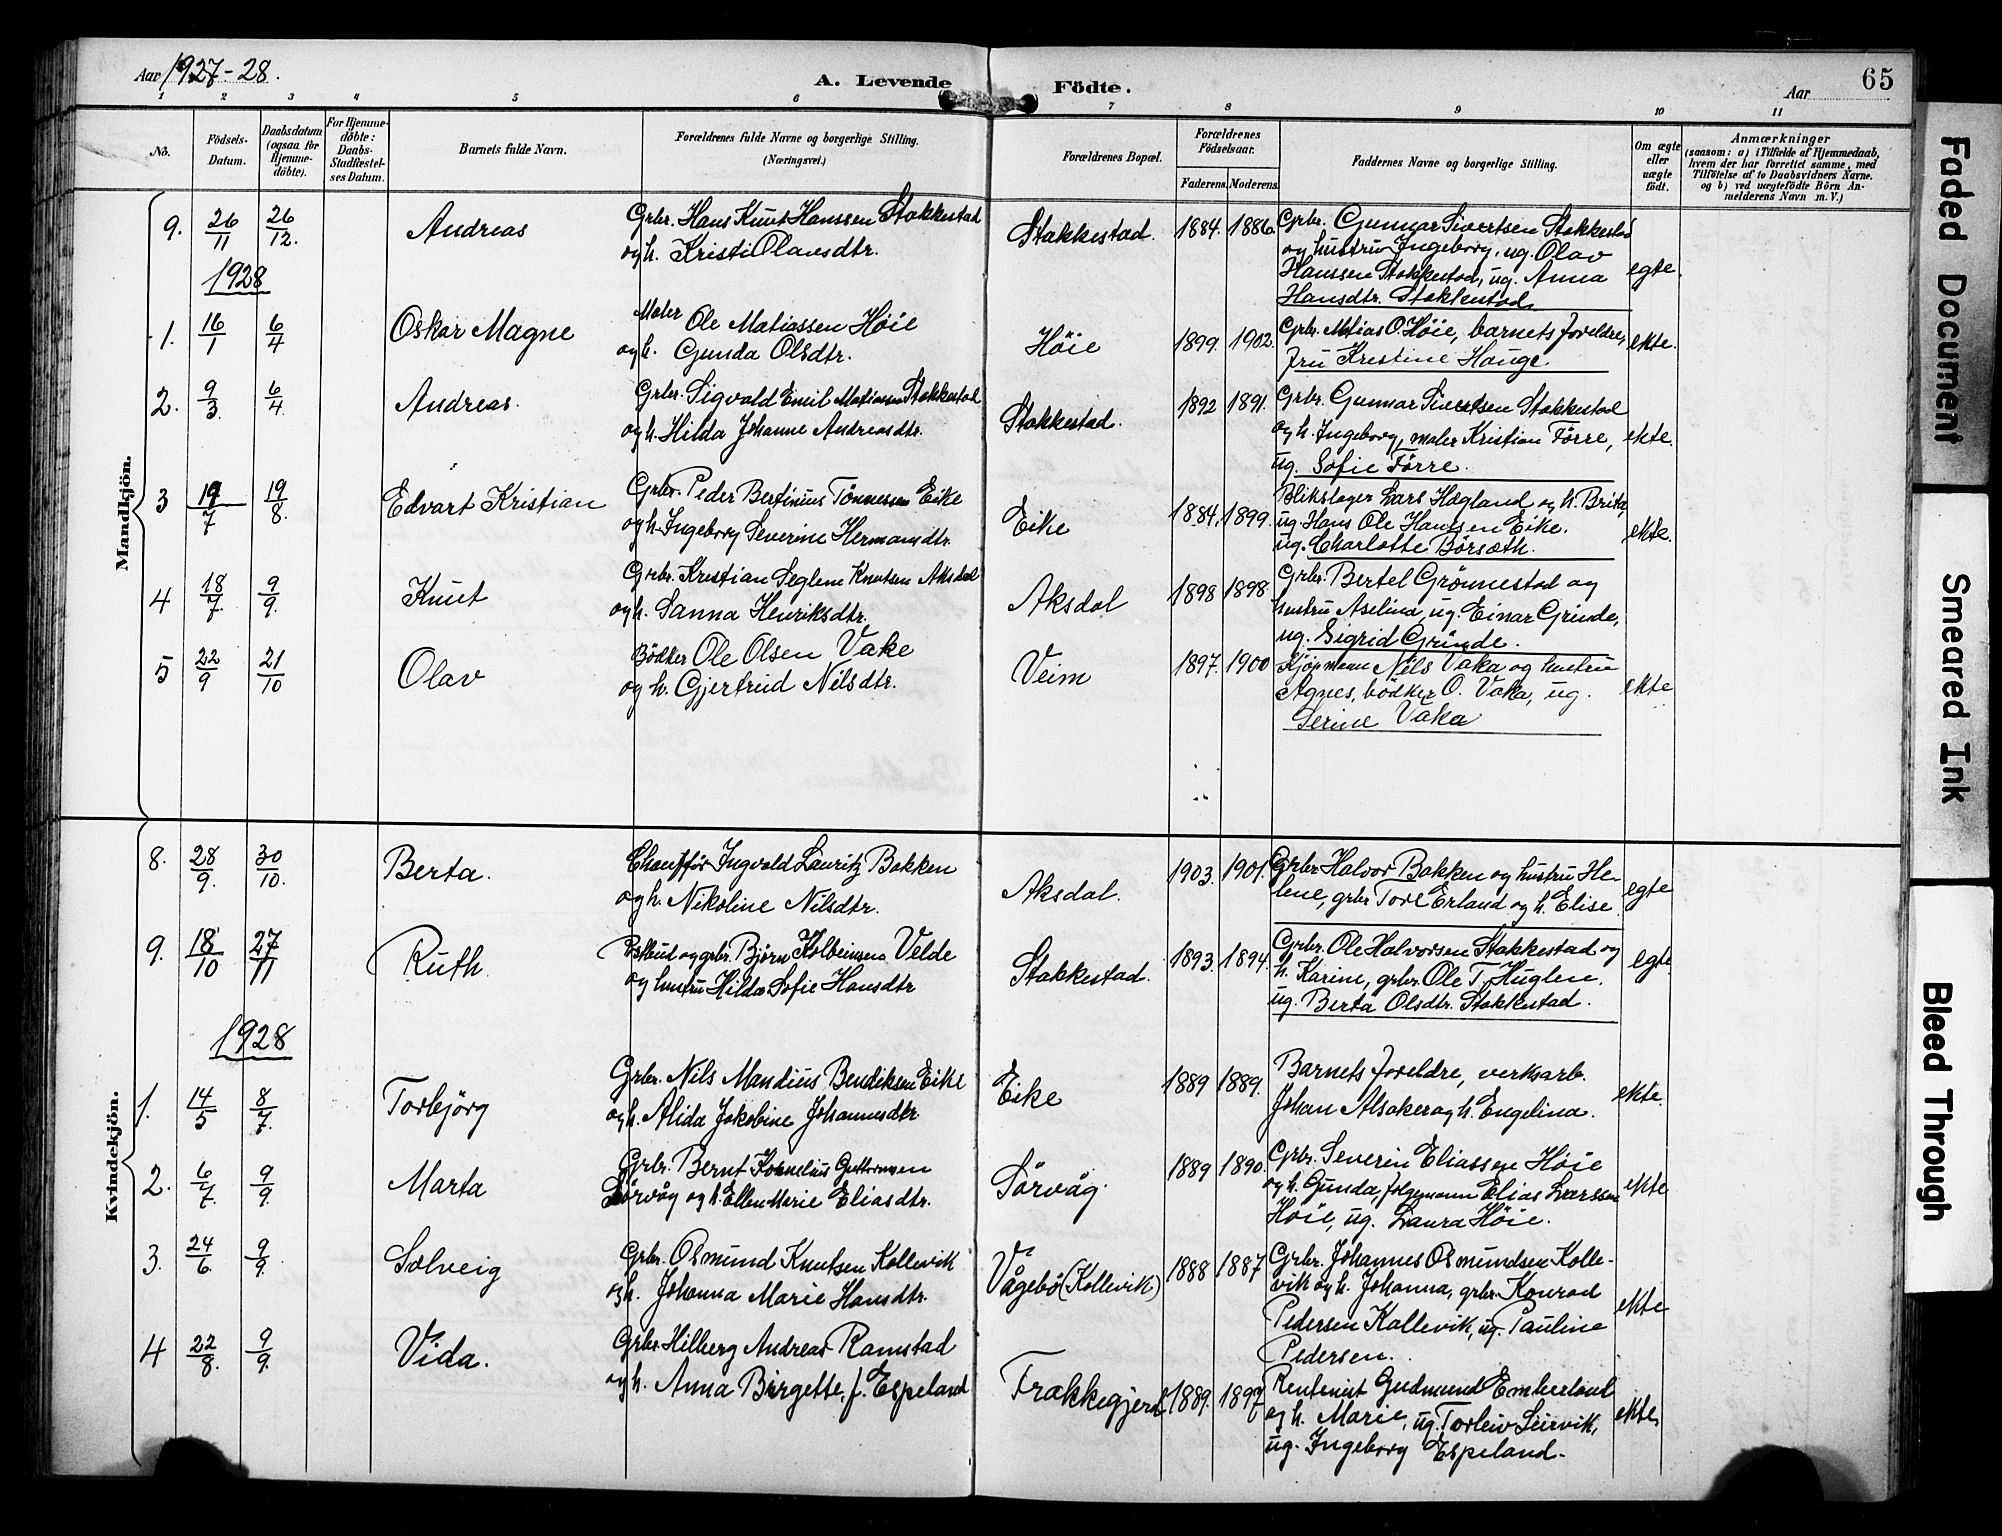 Aar 1927-28.
A. Levende Födte.
Aar
65
1 2 3 4 5 6 7 8 9 10 11
No.
Födsels-Datum.
Daabsdatum (ogsaa for Hjemme-döbte).
For Hjemme-döbte: Daabs-Stadfæstel-ses Datum.
Barnets fulde Navn.
Forældrenes fulde Navne og borgerlige Stilling.
(Næringsvei.)
Forældrenes Bopæl.
Forældrenes Födselsaar.
Faderens. Moderens.
Faddernes Navne og borgerlige Stilling.
Om ægte eller uægte födt.
Anmærkninger
(saasom: a) i Tilfælde af Hjemmedaab,
hvem der har forrettet samme, med
Tilföielse af to Daabsvidners Navne.
og b) ved uægtefödte Börn An-
melderens Navn m. V.)
Mandkjön.
9. 26/11 26/12. Andreas
Grbr. Hans Knut Hanssen Stakkestad
og h. Kristi Olavsdtr.
Stakkestad. 1884. 1886
Grbr. Gunnar Sivertsen Stakkestad
og hustru Ingeborg, ug. Olav
Hanssen Stakkestad, ug. Anna
Hansdtr. Stakkestad.
egte.
1928
1. 16/1 6/4 Oskar Magne
Maler Ole Matiassen Höie
og h. Gunda Olsdtr.
Höie 1899. 1902.
Grbr. Matias O. Höie, barnets foreldre,
fru Kristine Hauge.
ekte.
2. 9/3. 6/4 Andreas.
Grbr. Sigvald Emil Matiassen Stakkestad
og h. Hilda Johanne Andreasdtr.
Stakkestad. 1892 1891.
Grbr. Gunnar Sivertsen Stakkestad
og h. Ingeborg, maler Kristian Förre,
ug. Sofie Förre.
ekte.
3 19/7 19/8. Edvart Kristian
Grbr. Peder Bertinius Tönnessen Eike
og h. Ingeborg Severine Hermansdtr.
Eike 1884. 1899.
Blikslager Lars Hagland og h. Brita,
ug. Hans Ole Hanssen Eike.
ug. Charlotte Börsæth.
ekte.
4 18/7 9/9. Knut
Grbr. Kristian Seglem Knutsen Aksdal
og h. Sanna Henriksdtr.
Aksdal 1898 1898
Grbr. Bertel Grönnestad og
hustru Aselina, ug. Einar Grinde,
ug. Sigrid Grinde.
5 22/9 21/10 Olav
Bödker Ole Olsen Vake
og h. Gjertrud Nilsdtr.
Veim 1897. 1900
Kjöpmann Nils Vaka og hustru
Agnes, bödker O. Vaka, ug.
Serine Vaka
ekte
Kvindekjön.
8. 28/9. 30/10. Berta.
Chaufför Ingvald Lauritz Bakken
og h. Nikoline Nilsdtr.
Aksdal. 1903. 1901.
Grbr Halvor Bakken og hustru He-
lene, grbr Tore Erland og h. Elise.
egte
9. 18/10 27/11 Ruth.
Postbud og grbr. Björn Kolbeinsen Velde
og hustru Hilda Sofie Hansdtr
Stakkestad. 1893. 1894.
Grbr. Ole Halvorsen Stakkestad og
h. Karine, grbr. Ole T. Huglen.
ug. Berta Olsdtr. Stakkestad.
egte
1928
1. 14/5 8/7. Torbjörg
Grbr. Nils Mandius Bendiksen Eike
og h. Alida Jakobine Johannesdtr.
Eike 1889 1889.
Barnets foreldre, verksarb.
Johan Alsaker og h. Engelina.
ekte.
2. 6/7. 9/9 Marta
Grbr. Bernt Kornelius Guttormsen
Sörvåg og h. Ellen Marie Eliasdtr.
Sörvåg. 1889 1890.
Grbr. Severin Eliassen Höie
og h. Gunda, folgemann Elias Larssen
Höie, ug. Laura Höie.
ekte
3. 24/6. 9/9. Solveig
Grbr. Osmund Knutsen Kollevik
og h. Johanna Marie Hansdtr.
Vågebö (Kollevik) 1888 1887
Grbr. Johannes Osmundsen Kolle-
vik og h. Johanna, grbr. Konrad
Pedersen Kallevik, ug. Pauline
Pedersen.
ekte
4 22/8. 9/9. Vida.
Grbr. Hilberg Andreas Ramstad
og h. Anna Birgette, f. Espeland
Frakkegjerd 1889. 1897
Rentenist Gudmund Emberland
og h. Marie, ug. Torleiv Leirvik,
ug. Ingeborg Espeland.
ekte.
Faded Document
Smeared Ink
Bleed Through